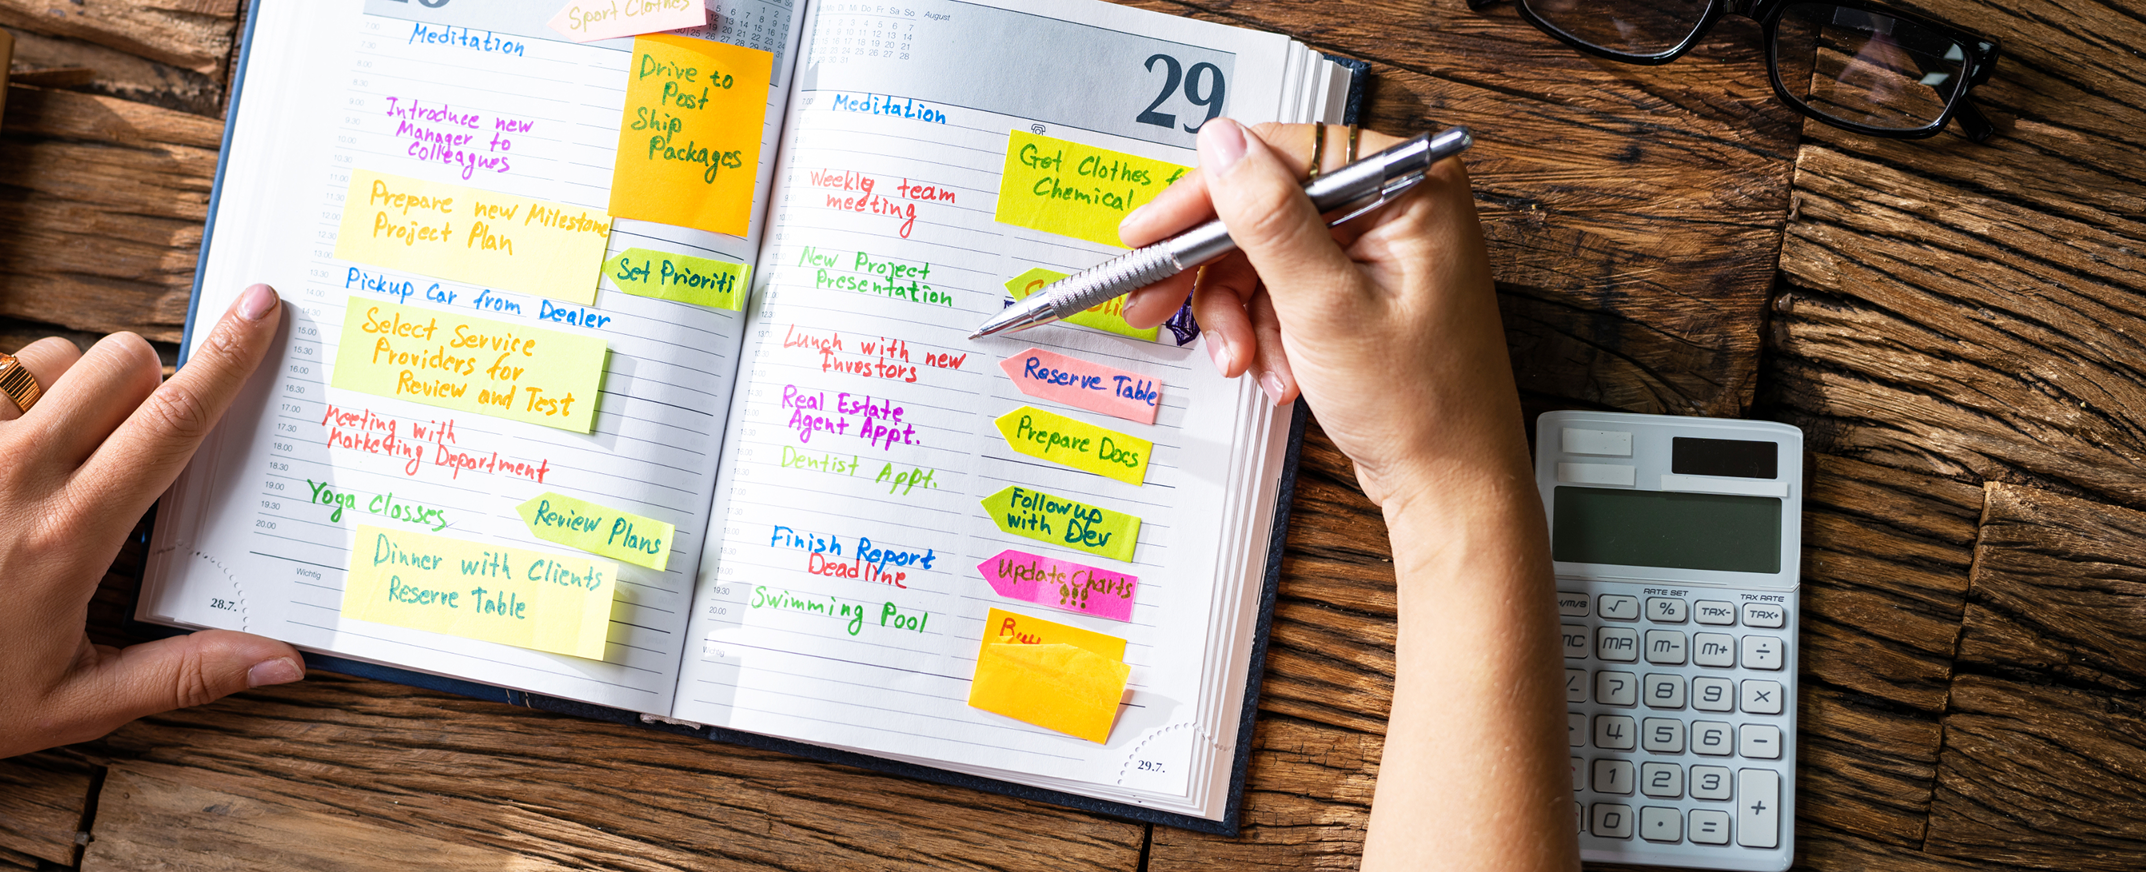 Sport Clothes
Meditation
Drive to
Post
Ship
Packages
Introduce new
Manager to
Colleagues
Prepare new Milestone
Project Plan
Set Prioriti
Pickup Car from Dealer
Select Service
Providers for
Review and Test
Meeting with
Marketing Department
Yoga Classes
Review Plans
Dinner with Clients
Reserve Table
Wichtig
28.7.
August
29
Meditation
Get Clothes f
Chemical
Weekly team
meeting
New Project
Presentation
Lunch with new
Investors
Reserve Table
Real Estate
Agent Appt.
Prepare Docs
Dentist Appt.
Follow up
with Dev
Finish Report
Deadline
Update Charts
!!!
Swimming Pool
Buy
Wichtig
29.7.
RATE SET
TAX RATE
√
%
TAX-
TAX+
MR
M-
M+
÷
7
8
9
×
4
5
6
−
1
2
3
+
0
.
=